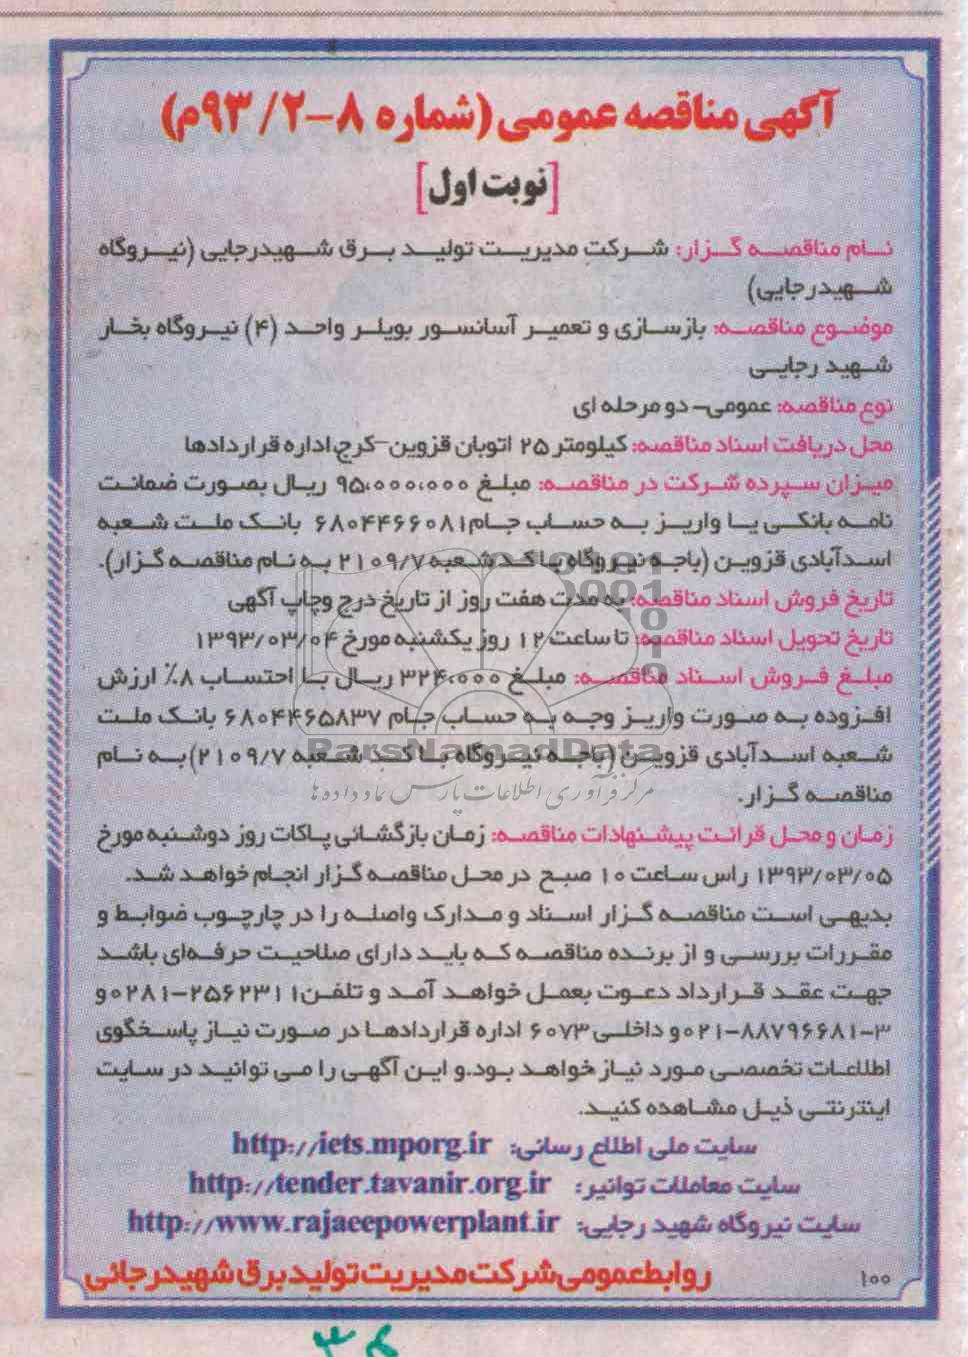 آگهی مناقصه عمومی (شماره ۸-۲/ ۹۳م)
[نوبت اول]
نام مناقصه گزار: شرکت مدیریت تولید برق شهیدرجایی (نیروگاه
شهیدرجایی)
موضوع مناقصه: بازسازی و تعمیر آسانسور بویلر واحد (۴) نیروگاه بخار
شهید رجایی
نوع مناقصه: عمومی- دو مرحله ای
محل دریافت اسناد مناقصه: کیلومتر ۲۵ اتوبان قزوین-کرج،اداره قراردادها
میزان سپرده شرکت در مناقصه: مبلغ ۹۵،۰۰۰،۰۰۰ ریال بصورت ضمانت
نامه بانکی یا واریز به حساب جام۶۸۰۴۴۶۶۰۸۱ بانک ملت شعبه
اسدآبادی قزوین (باجه نیروگاه با کد شعبه ۲۱۰۹/۷ به نام مناقصه گزار).
تاریخ فروش اسناد مناقصه: به مدت هفت روز از تاریخ درج وچاپ آگهی
تاریخ تحویل اسناد مناقصه: تا ساعت ۱۲ روز یکشنبه مورخ ۱۳۹۳/۰۳/۰۴
مبلغ فروش اسناد مناقصه: مبلغ ۳۲۴،۰۰۰ ریال با احتساب ۸٪ ارزش
افزوده به صورت واریز وجه به حساب جام ۶۸۰۴۴۶۵۸۳۷ بانک ملت
شعبه اسدآبادی قزوین (باجه نیروگاه با کد شعبه ۲۱۰۹/۷) به نام
ParsNamadData
مرکز فرآوری اطلاعات پارس نماد داده ها
مناقصه گزار.
زمان و محل قرائت پیشنهادات مناقصه: زمان بازگشائی پاکات روز دوشنبه مورخ
۱۳۹۳/۰۳/۰۵ راس ساعت ۱۰ صبح در محل مناقصه گزار انجام خواهد شد.
بدیهی است مناقصه گزار اسناد و مدارک واصله را در چارچوب ضوابط و
مقررات بررسی و از برنده مناقصه که باید دارای صلاحیت حرفه‌ای باشد
جهت عقد قرارداد دعوت بعمل خواهد آمد و تلفن۰۲۸۱-۲۵۶۲۳۱۱ و
۰۲۱-۸۸۷۹۶۶۸۱-۳ و داخلی ۶۰۷۳ اداره قراردادها در صورت نیاز پاسخگوی
اطلاعات تخصصی مورد نیاز خواهد بود.و این آگهی را می توانید در سایت
اینترنتی ذیل مشاهده کنید.
سایت ملی اطلاع رسانی: http://iets.mporg.ir
سایت معاملات توانیر: http://tender.tavanir.org.ir
سایت نیروگاه شهید رجایی: http://www.rajaeepowerplant.ir
روابط عمومی شرکت مدیریت تولید برق شهیدرجائی
۱۰۰